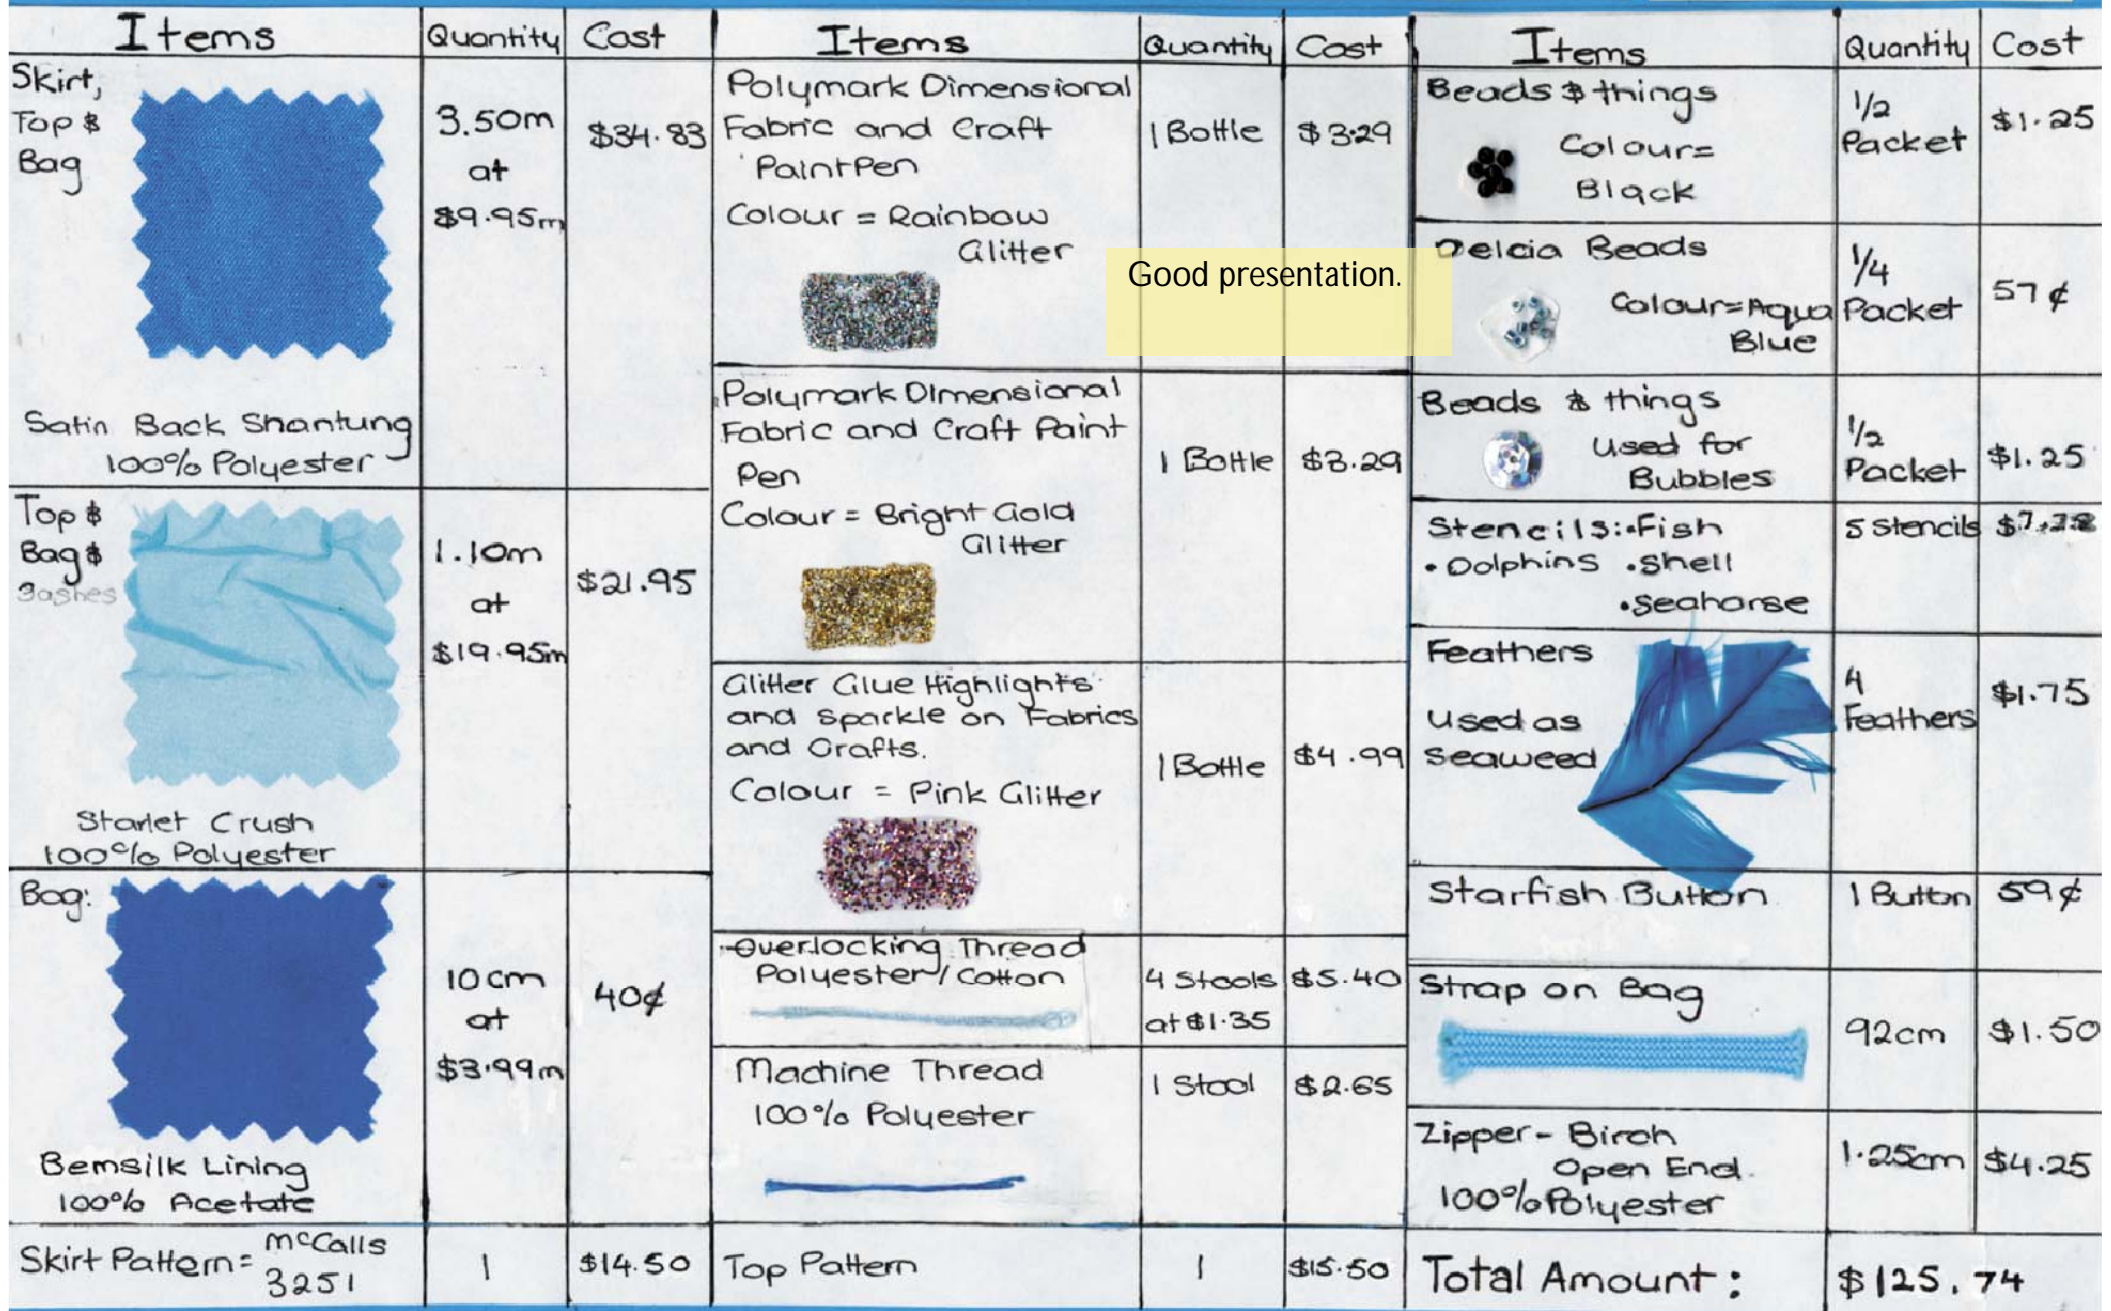 Items Quantity Cost
Skirt,
Top &
Bag
3.50m
at
$9.95m
$34.83
Satin Back Shantung
100% Polyester
Top &
Bag &
Sashes
1.10m
at
$19.95m
$21.95
Starlet Crush
100% Polyester
Bag:
10cm
at
$3.99m
40¢
Bemsilk Lining
100% Acetate
Skirt Pattern = McCalls
3251
1
$14.50
Items Quantity Cost
Polymark Dimensional
Fabric and Craft
Paint Pen
Colour = Rainbow
Glitter
1 Bottle
$3.29
Good presentation.
Polymark Dimensional
Fabric and Craft Paint
Pen
Colour = Bright Gold
Glitter
1 Bottle
$3.29
Glitter Glue Highlights
and sparkle on Fabrics
and Crafts.
Colour = Pink Glitter
1 Bottle
$4.99
Overlocking Thread
Polyester/Cotton
4 Stools
at $1.35
$5.40
Machine Thread
100% Polyester
1 Stool
$2.65
Top Pattern
1
$15.50
Items Quantity Cost
Beads & things
Colour =
Black
1/2
Packet
$1.25
Delcia Beads
Colour = Aqua
Blue
1/4
Packet
57¢
Beads & things
used for
Bubbles
1/2
Packet
$1.25
Stencils: •Fish
•Dolphins •Shell
•Seahorse
5 Stencils
Feathers
used as
seaweed
4
Feathers
$1.75
Starfish Button
1 Button
59¢
Strap on Bag
92cm
$1.50
Zipper - Birch
Open End.
100% Polyester
1.25cm
$4.25
Total Amount:
$125.74